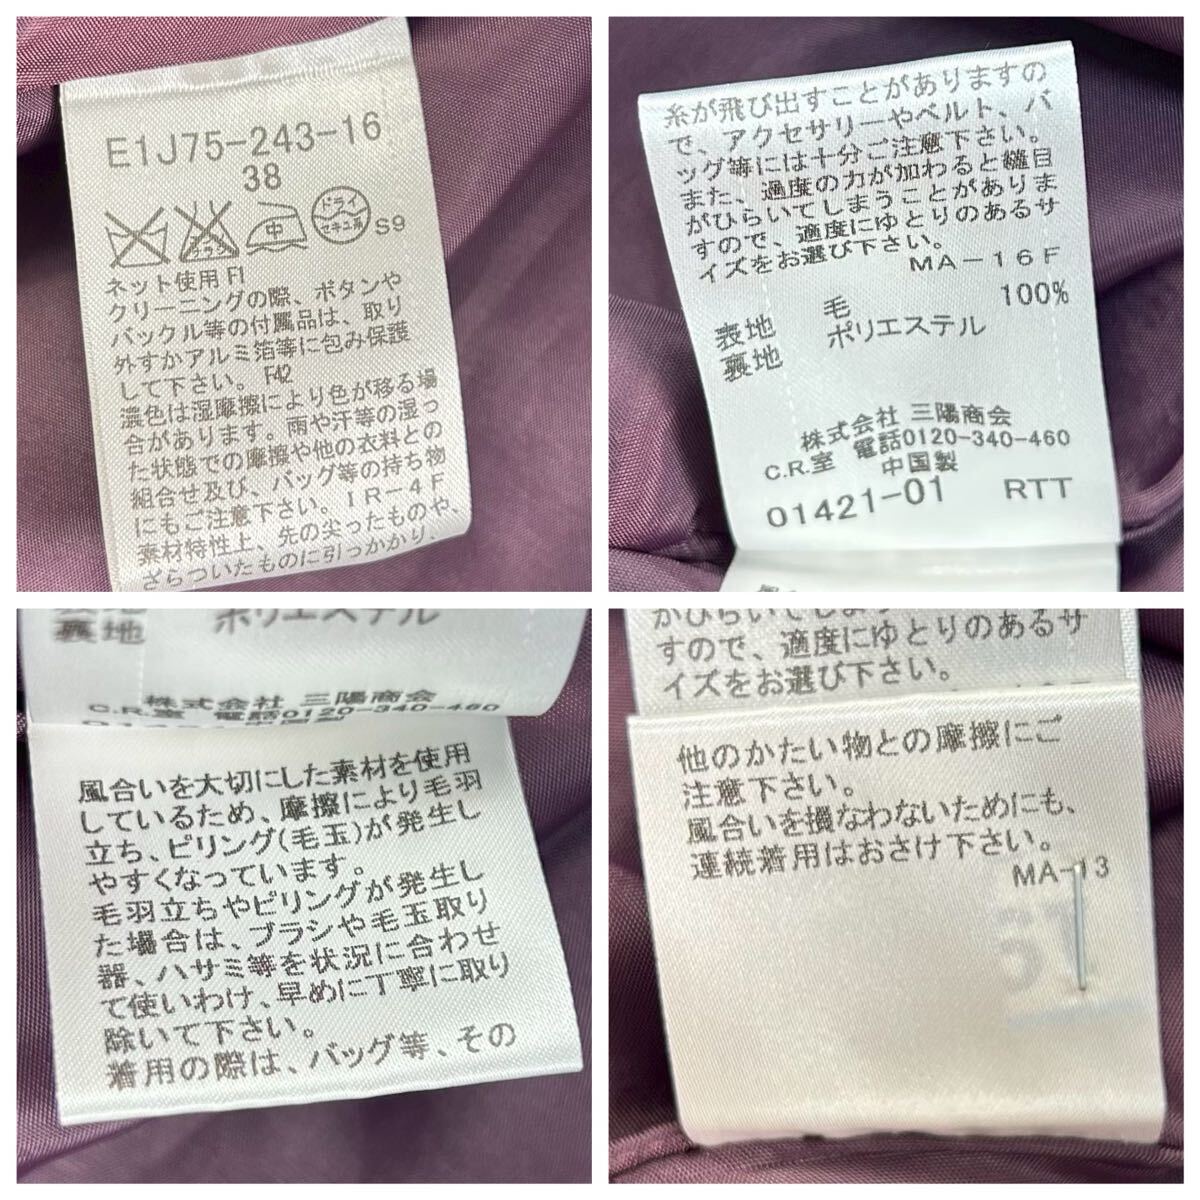 E1J75-243-16
38
エンソサラシ
中
ドライ
セキユ系
S9
ネット使用 F1
クリーニングの際、ボタンや
バックル等の付属品は、取り
外すかアルミ箔等に包み保護
して下さい。 F42
濃色は湿摩擦により色が移る場
合があります。雨や汗等の湿っ
た状態での摩擦や他の衣料との
組合せ及び、バッグ等の持ち物
にもご注意下さい。 IR-4F
素材特性上、先の尖ったものや、
ざらついたものに引っかかり、
糸が飛び出すことがありますの
で、アクセサリーやベルト、バ
ッグ等には十分ご注意下さい。
また、過度の力が加わると縫目
がひらいてしまうことがありま
すので、適度にゆとりのあるサ
イズをお選び下さい。
MA-16F
表地 毛 100%
裏地 ポリエステル
株式会社 三陽商会
C.R.室 電話0120-340-460
中国製
01421-01 RTT
裏地 ポリエステル
株式会社 三陽商会
C.R.室 電話0120-340-460
風合いを大切にした素材を使用
しているため、摩擦により毛羽
立ち、ピリング(毛玉)が発生し
やすくなっています。
毛羽立ちやピリングが発生し
た場合は、ブラシや毛玉取り
器、ハサミ等を状況に合わせ
て使いわけ、早めに丁寧に取り
除いて下さい。
着用の際は、バッグ等、その
がひらいてしまう
すので、適度にゆとりのあるサ
イズをお選び下さい。
他のかたい物との摩擦にご
注意下さい。
風合いを損なわないためにも、
連続着用はおさけ下さい。
MA-13